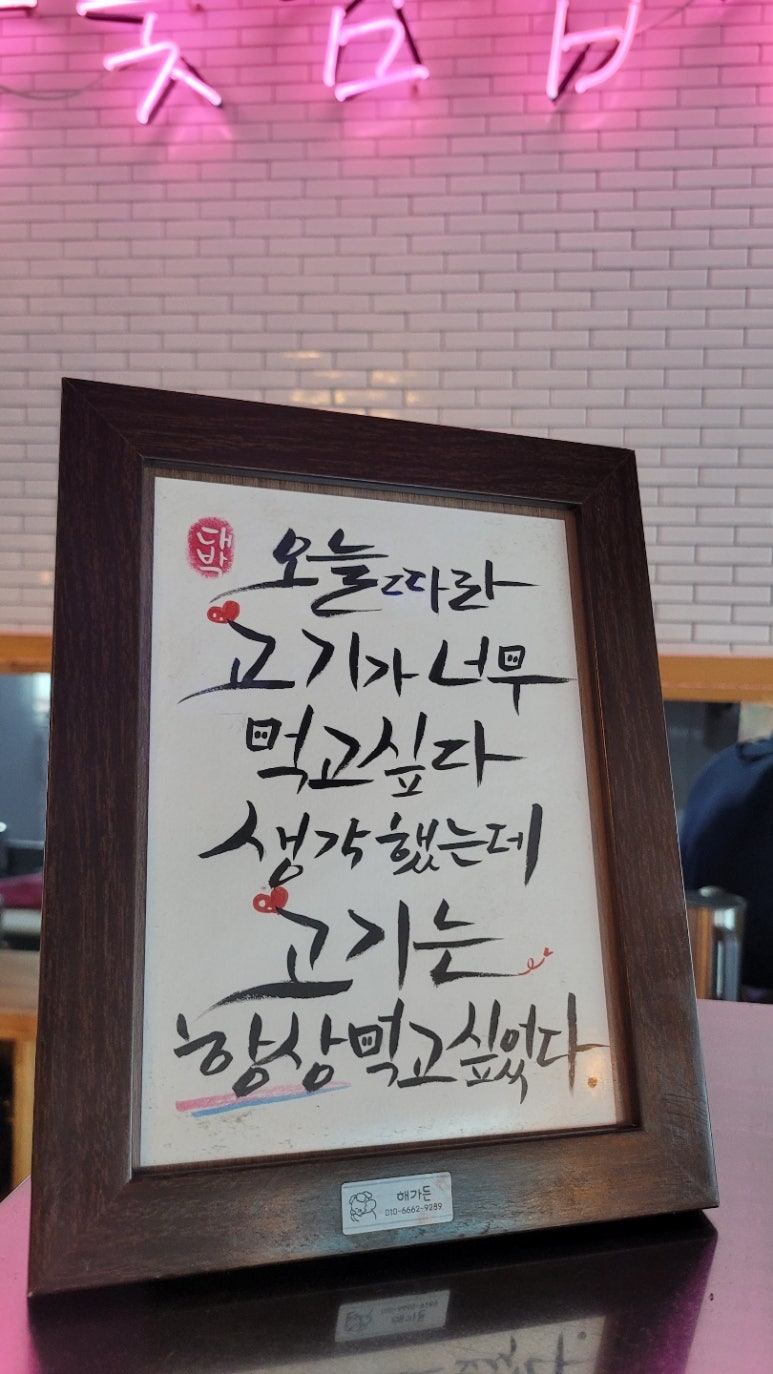 대박
오늘따라
고기가 너무
먹고싶다
생각했는데
고기는
항상먹고싶었다
해가든
010-6662-9289